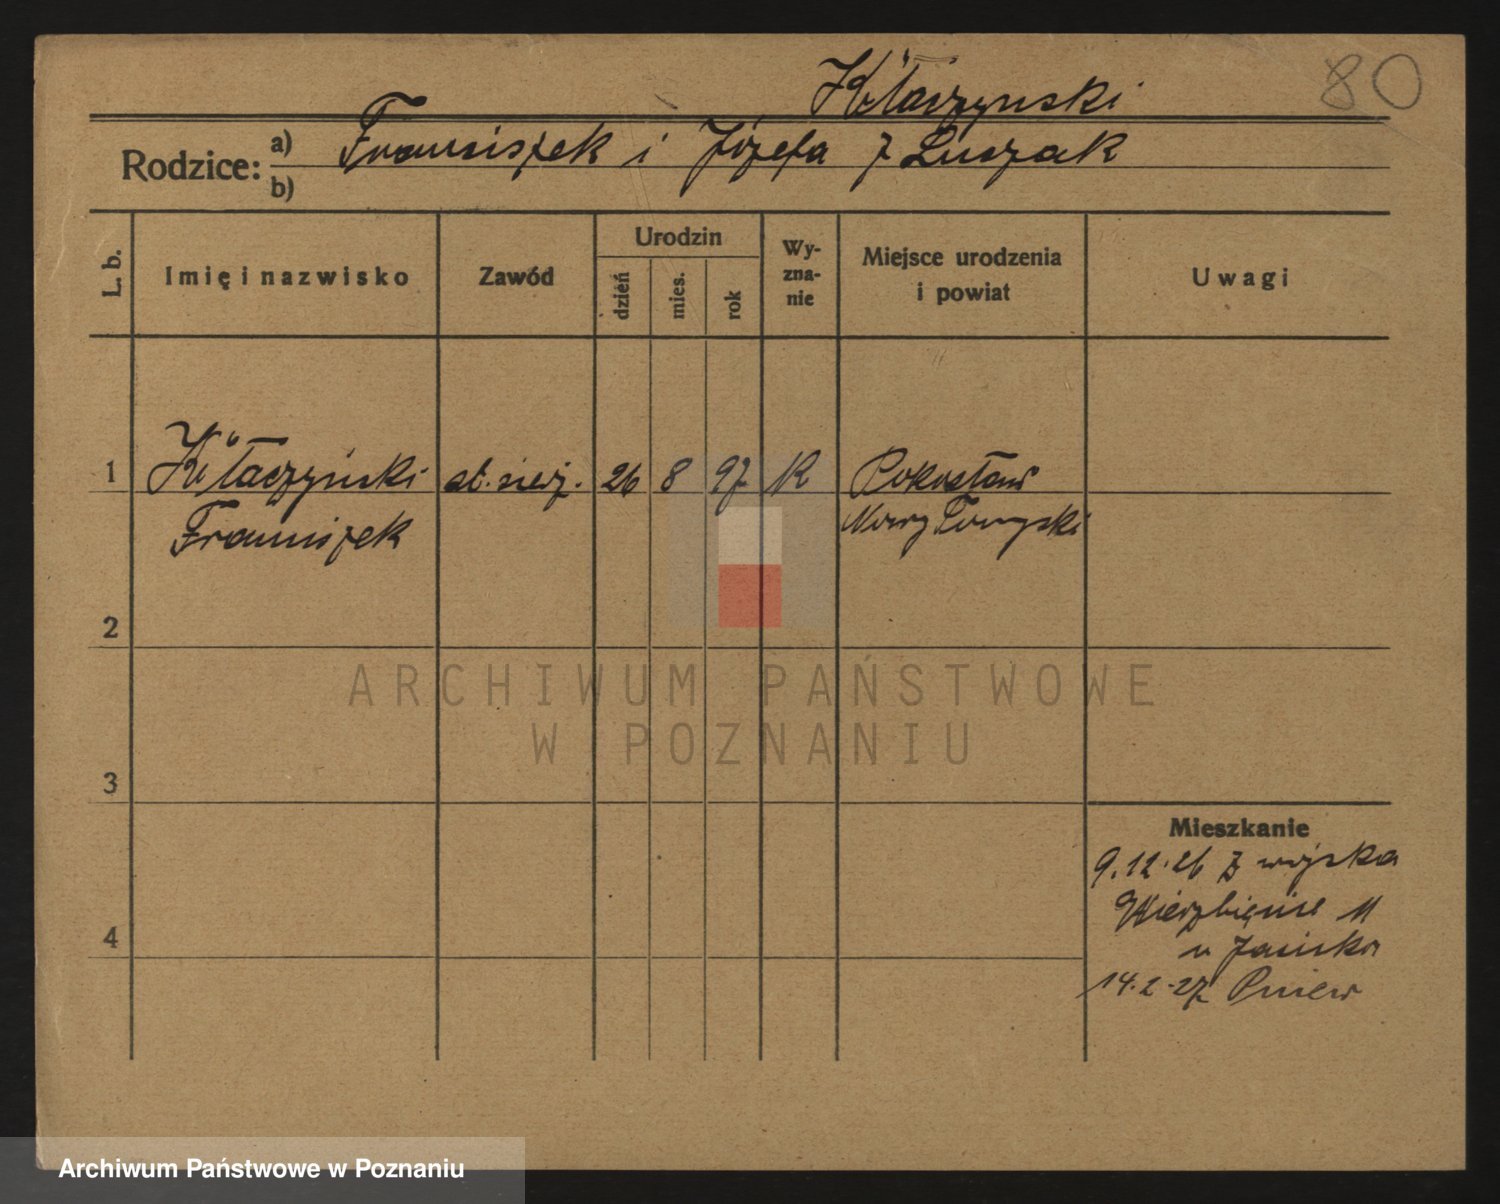 80
Kołaczyński
Rodzice:
a) Franciszek i Józefa z Luszak
b)
L. b.
Imię i nazwisko
Zawód
Urodzin
dzień
mies.
rok
Wy-
zna-
nie
Miejsce urodzenia
i powiat
Uwagi
1 Kołaczyński 26 8 97 K
Franciszek Nowy Tomyski
2
3
4
Mieszkanie
9.12.26 z wojska
Wierzbięcice 11
u
14.2.27 Pniew
ARCHIWUM PAŃSTWOWE
W POZNANIU
Archiwum Państwowe w Poznaniu